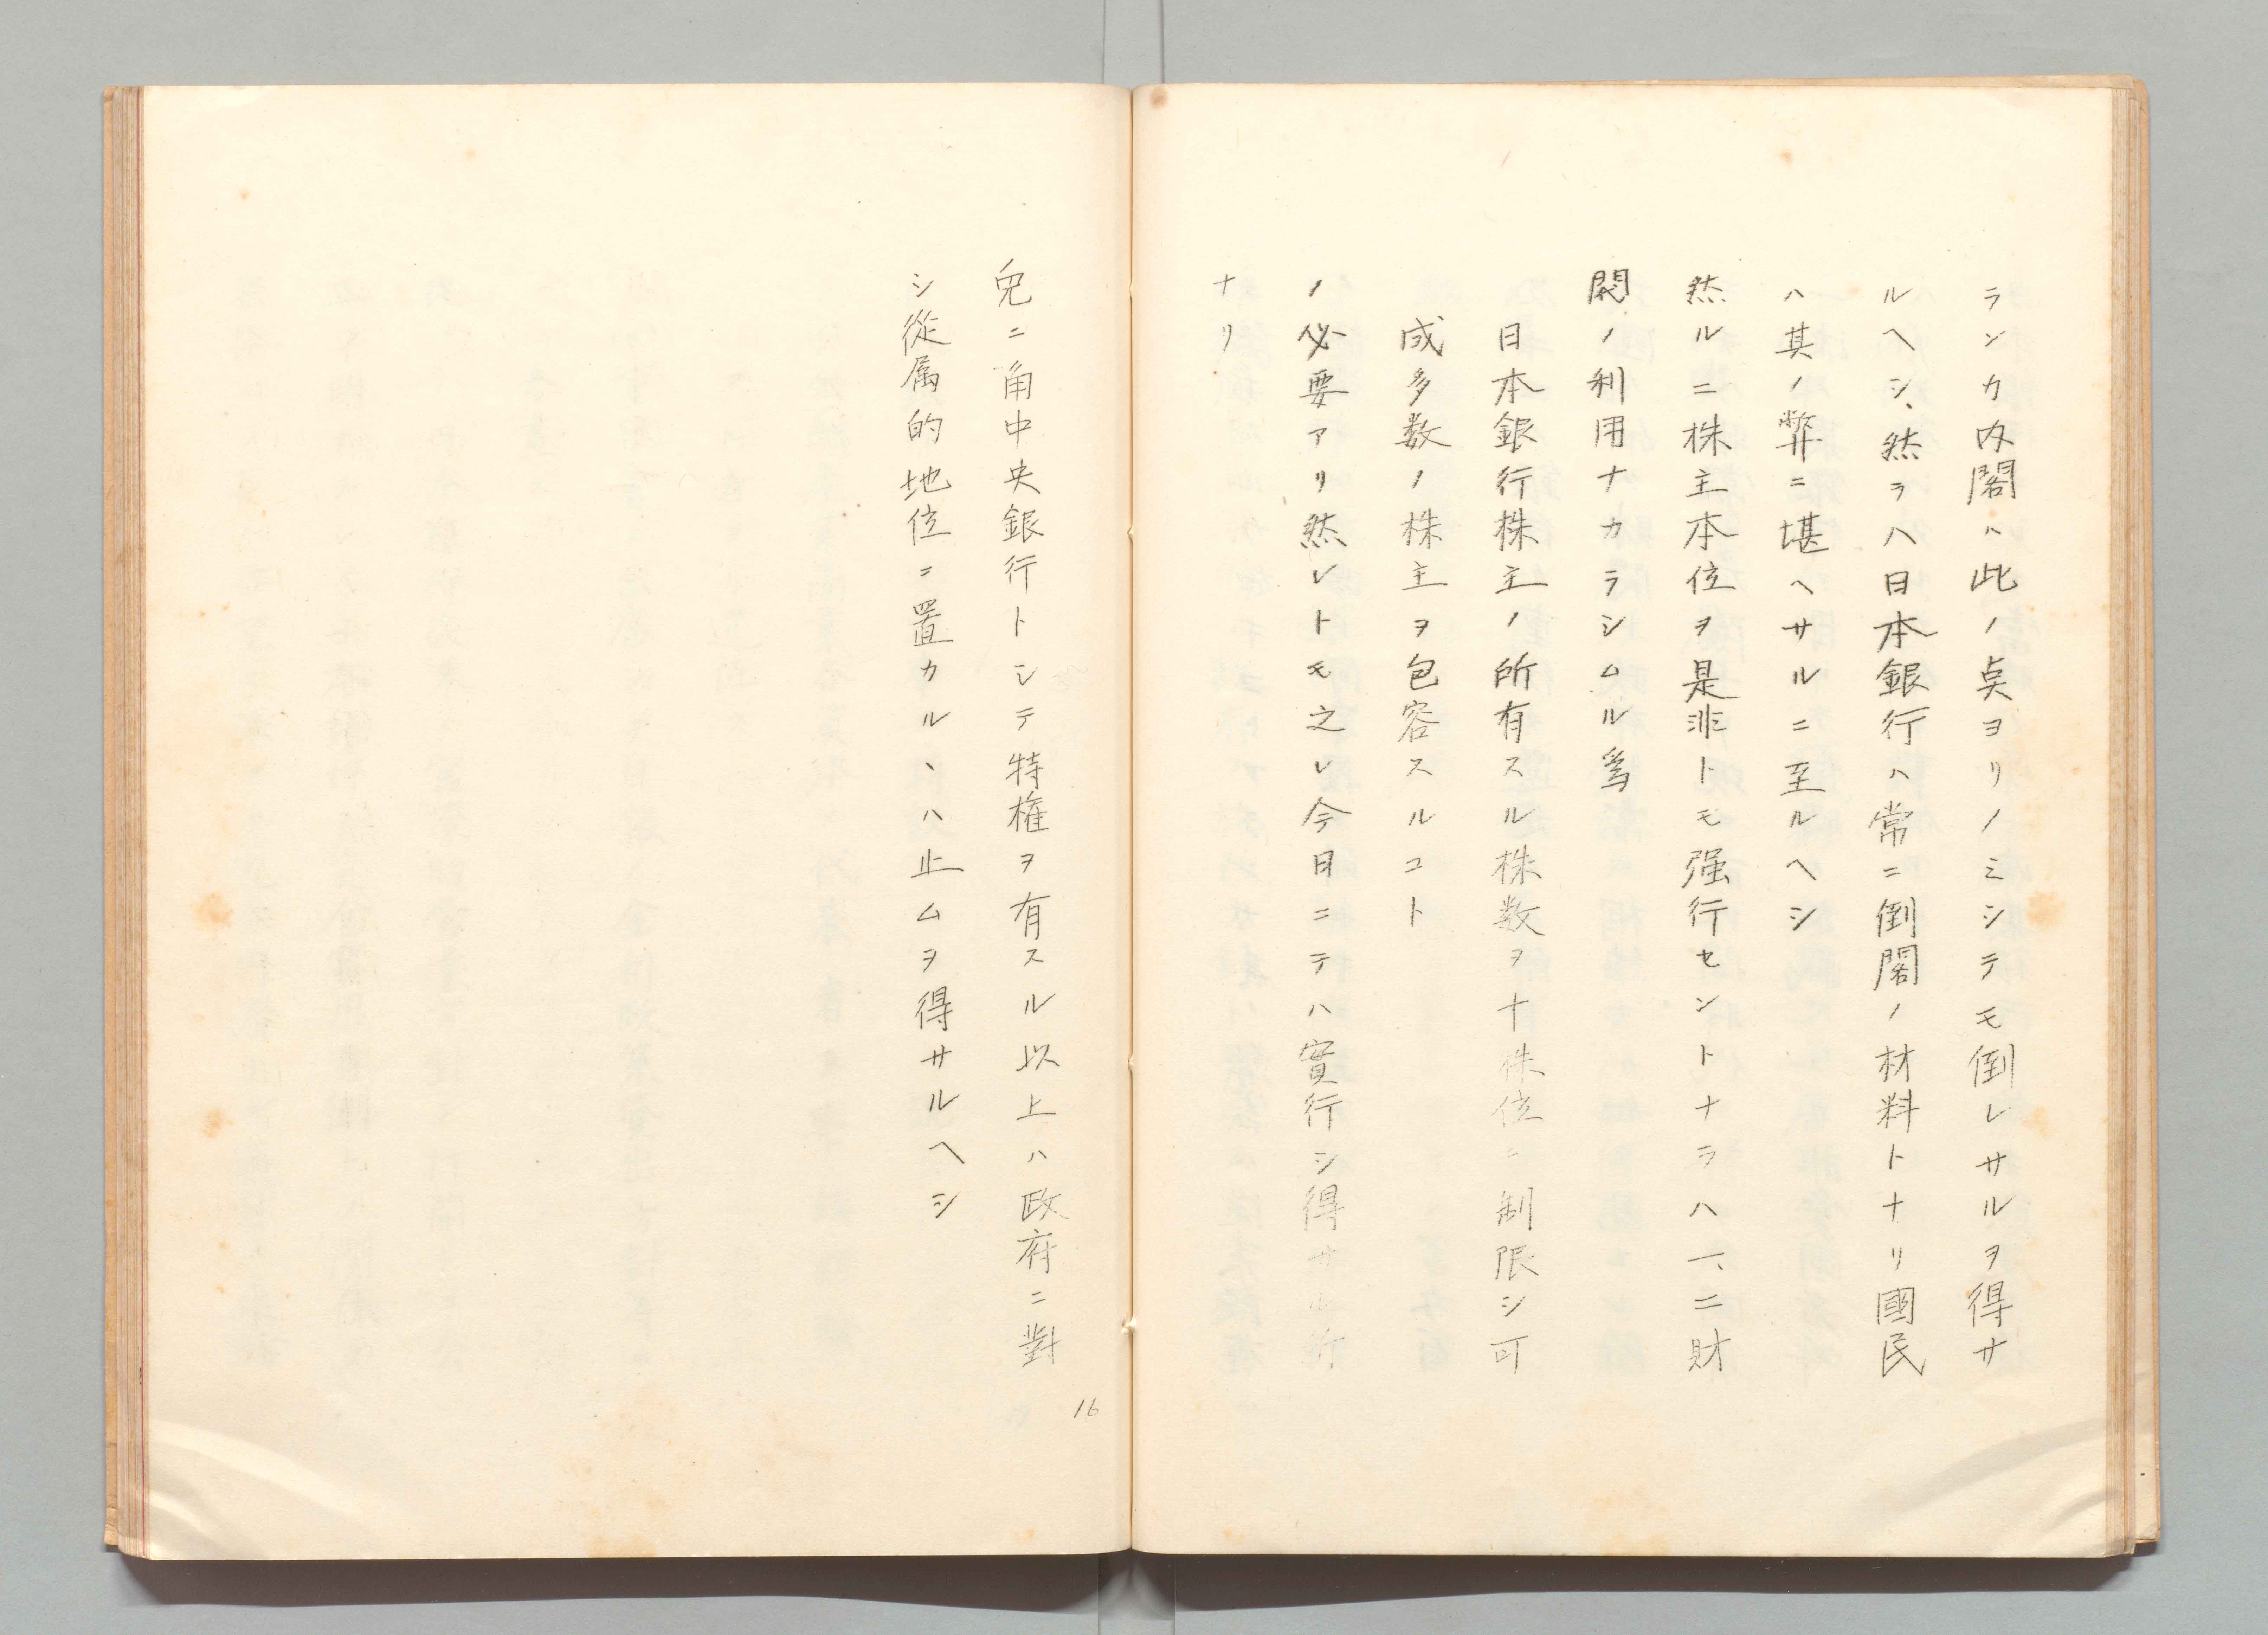 ランカ内閣ハ此ノ点ヨリノミシテモ倒レサルヲ得サ
ルヘシ、然ラハ日本銀行ハ常ニ倒閣ノ材料トナリ國民
ハ其ノ弊ニ堪ヘサルニ至ルヘシ
然ルニ株主本位ヲ是非トモ强行セントナラハ一、二財
閥ノ利用ナカラシムル爲
日本銀行株主ノ所有スル株数ヲ十株位ニ制限シ可
成多数ノ株主ヲ包容スルコト
ノ必要アリ然レトモ之レ今日ニテハ實行シ得サル所
ナリ
兎ニ角中央銀行トシテ特権ヲ有スル以上ハ政府ニ對
シ從属的地位ニ置カルヽハ止ムヲ得サルヘシ
16